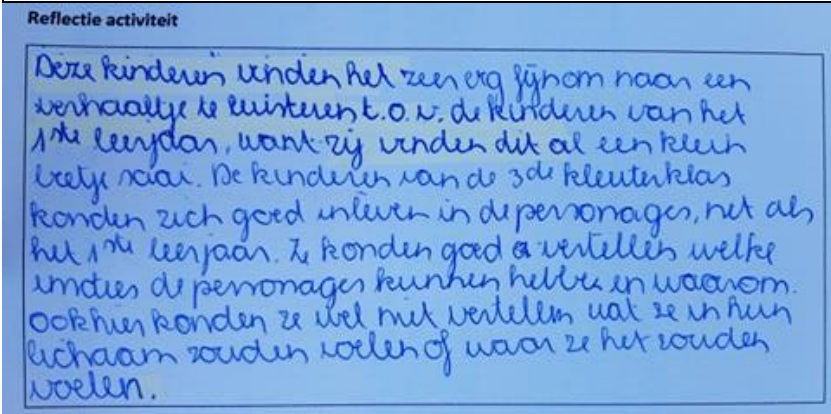 Reflectie activiteit
Deze kinderen vinden het zeer erg fijn om naar een
verhaaltje te luisteren t.o.v. de kinderen van het
1ste leerjaar, want zij vinden dit al een klein
beetje saai. De kinderen van de 3de kleuterklas
konden zich goed inleven in de personages, net als
het 1ste leerjaar. Ze konden goed vertellen welke
emoties de personages kunnen hebben en waarom.
Ook hier konden ze wel niet vertellen wat ze in hun
lichaam zouden voelen of waar ze het zouden
voelen.